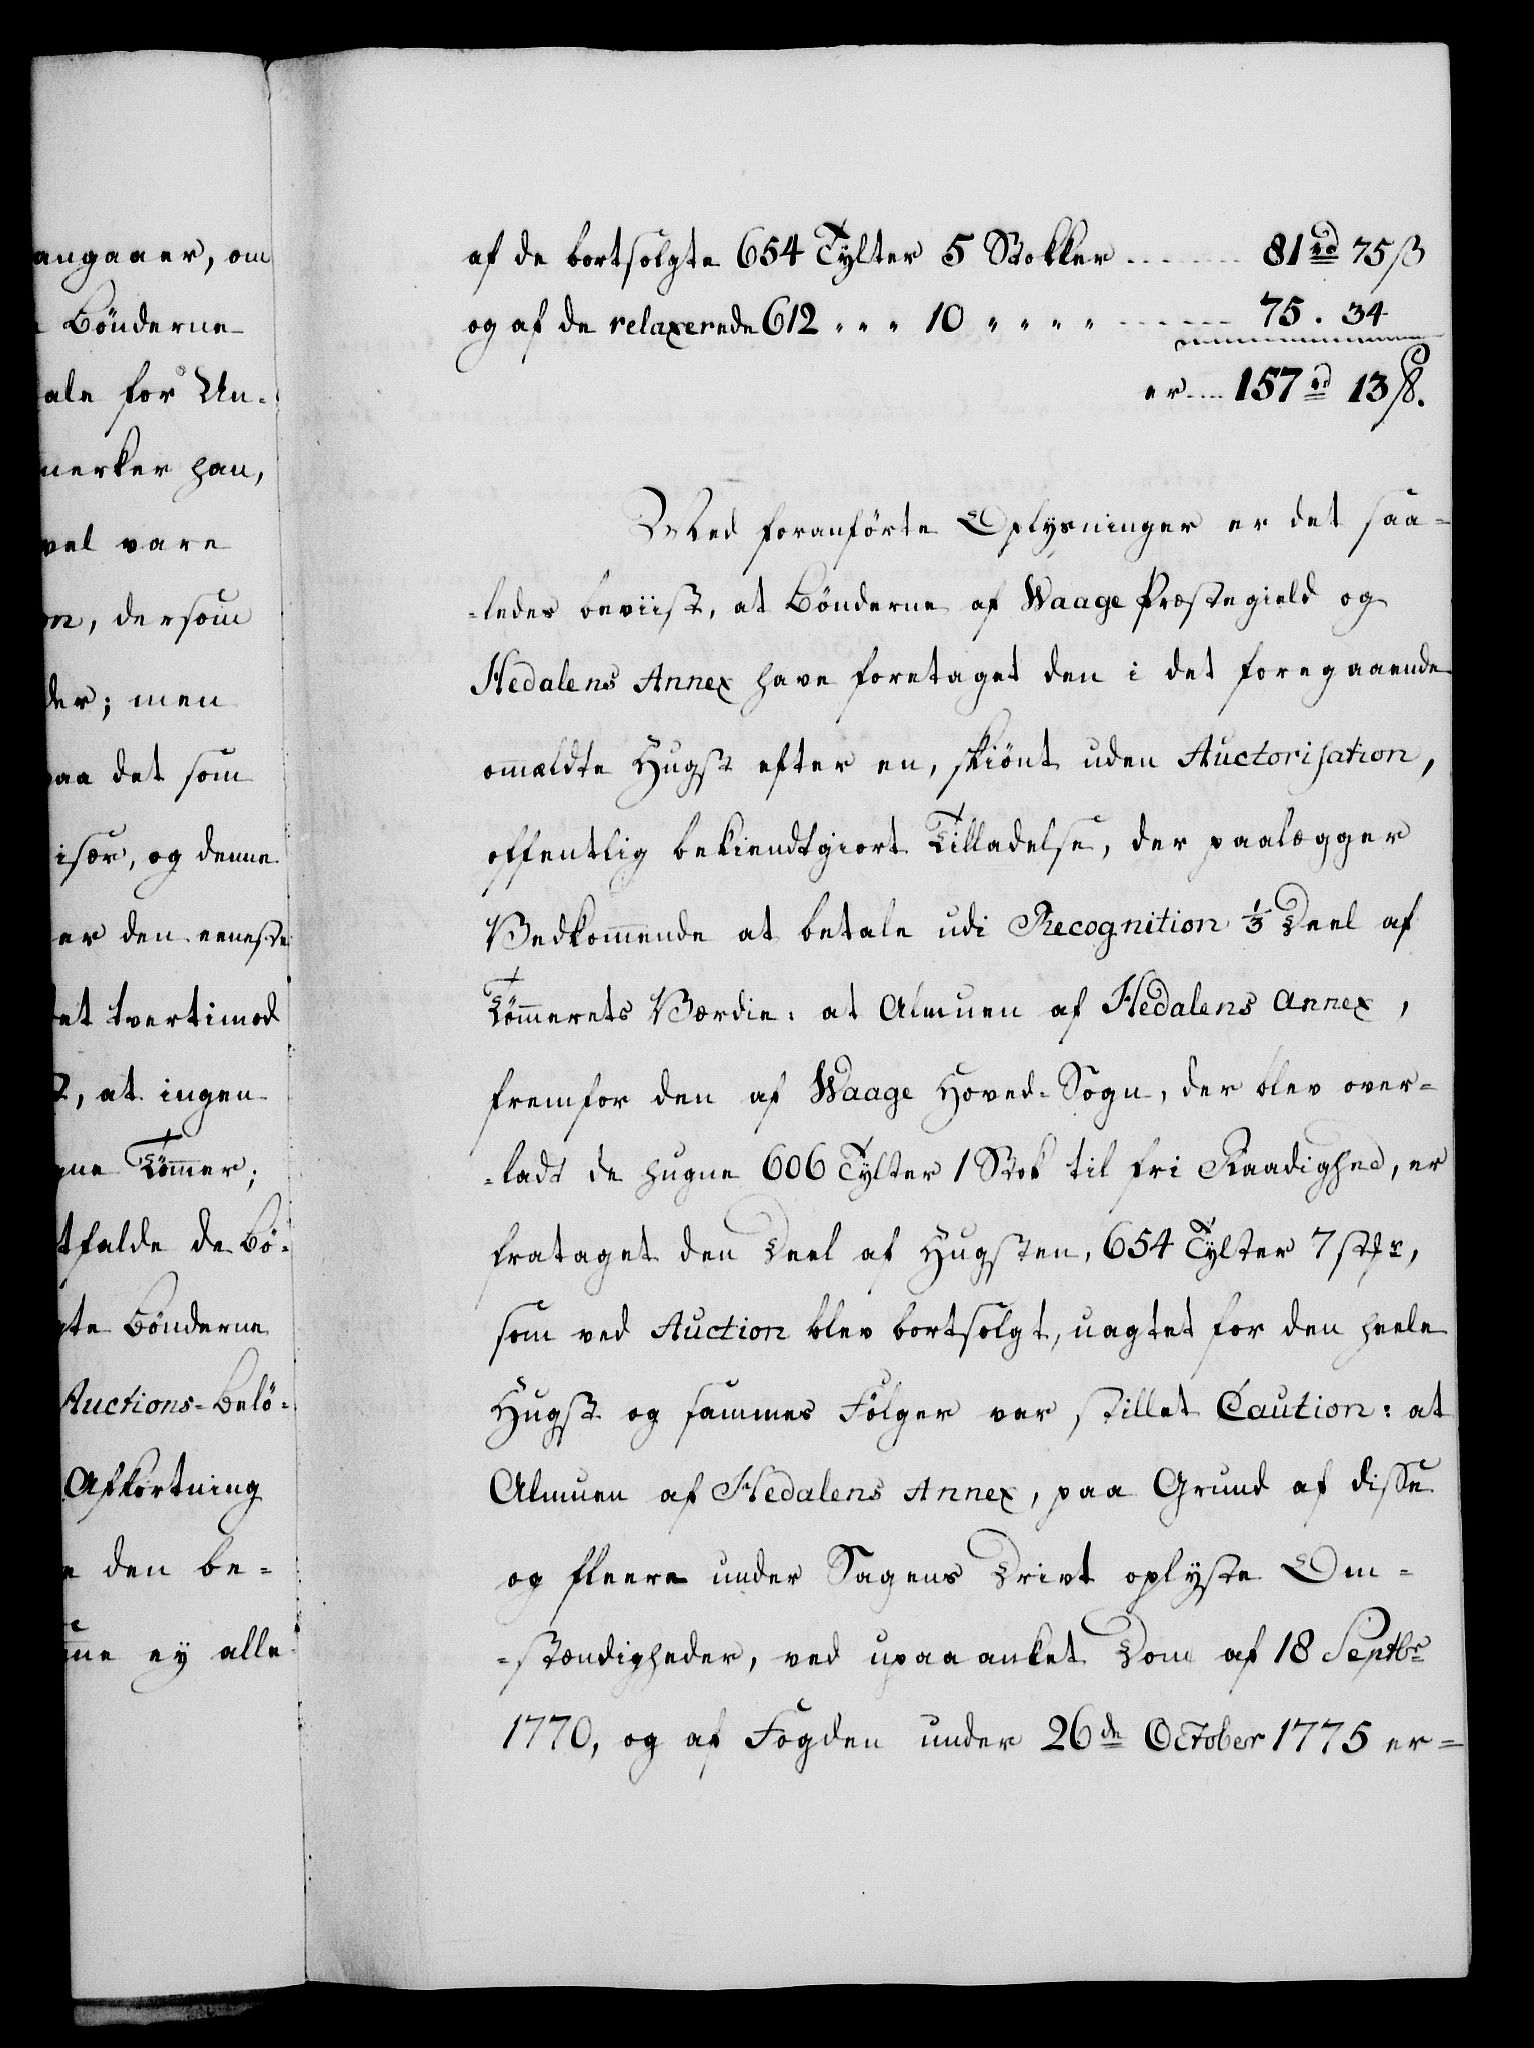 angaaer, om
Bönderne
ale for Un-
merker han,
vel være
on, dersom
der; men
paa det som
især, og denne
er den eeneste
det tvertimod
t, at ingen
gne Tömmer;
tfalde de Bö-
gte Bönderne
Auctions-Belö-
Afkortning
e den be-
me ey alle
af de bortsolgte 654 Tylter 5 Stokker ...... 81 rd 75 ß
og af de relaxerede 612 " " " 10 " " " " ...... 75 . 34
er .... 157 rd 13 ß.
Med foranförte Oplysninger er det saa-
-ledes beviist, at Bönderne af Waage Præstegield og
Hedalens Annex have foretaget den i det foregaaende
omældte Hugst efter en, skiönt uden Auctorisation,
offentlig bekiendtgiort Tilladelse, der paalægger
Vedkommende at betale udi Recognition 1/3 Deel af
Tömmerets Værdie: at Almuen af Hedalens Annex,
fremfor den af Waage Hoved-Sogn, der blev over-
-ladt de hugne 606 Tylter 1 Stok til fri Raadighed, er
frataget den Deel af Hugsten, 654 Tylter 7 stkr,
som ved Auction blev bortsolgt, uagtet for den heele
Hugst og sammes Fölger var stillet Caution: at
Almuen af Hedalens Annex, paa Grund af disse
og fleere under Sagens Drivt oplyste Om-
-stændigheder, ved upaaanket Dom af 18 Septbr
1770, og af Fogden under 26de October 1775 er-